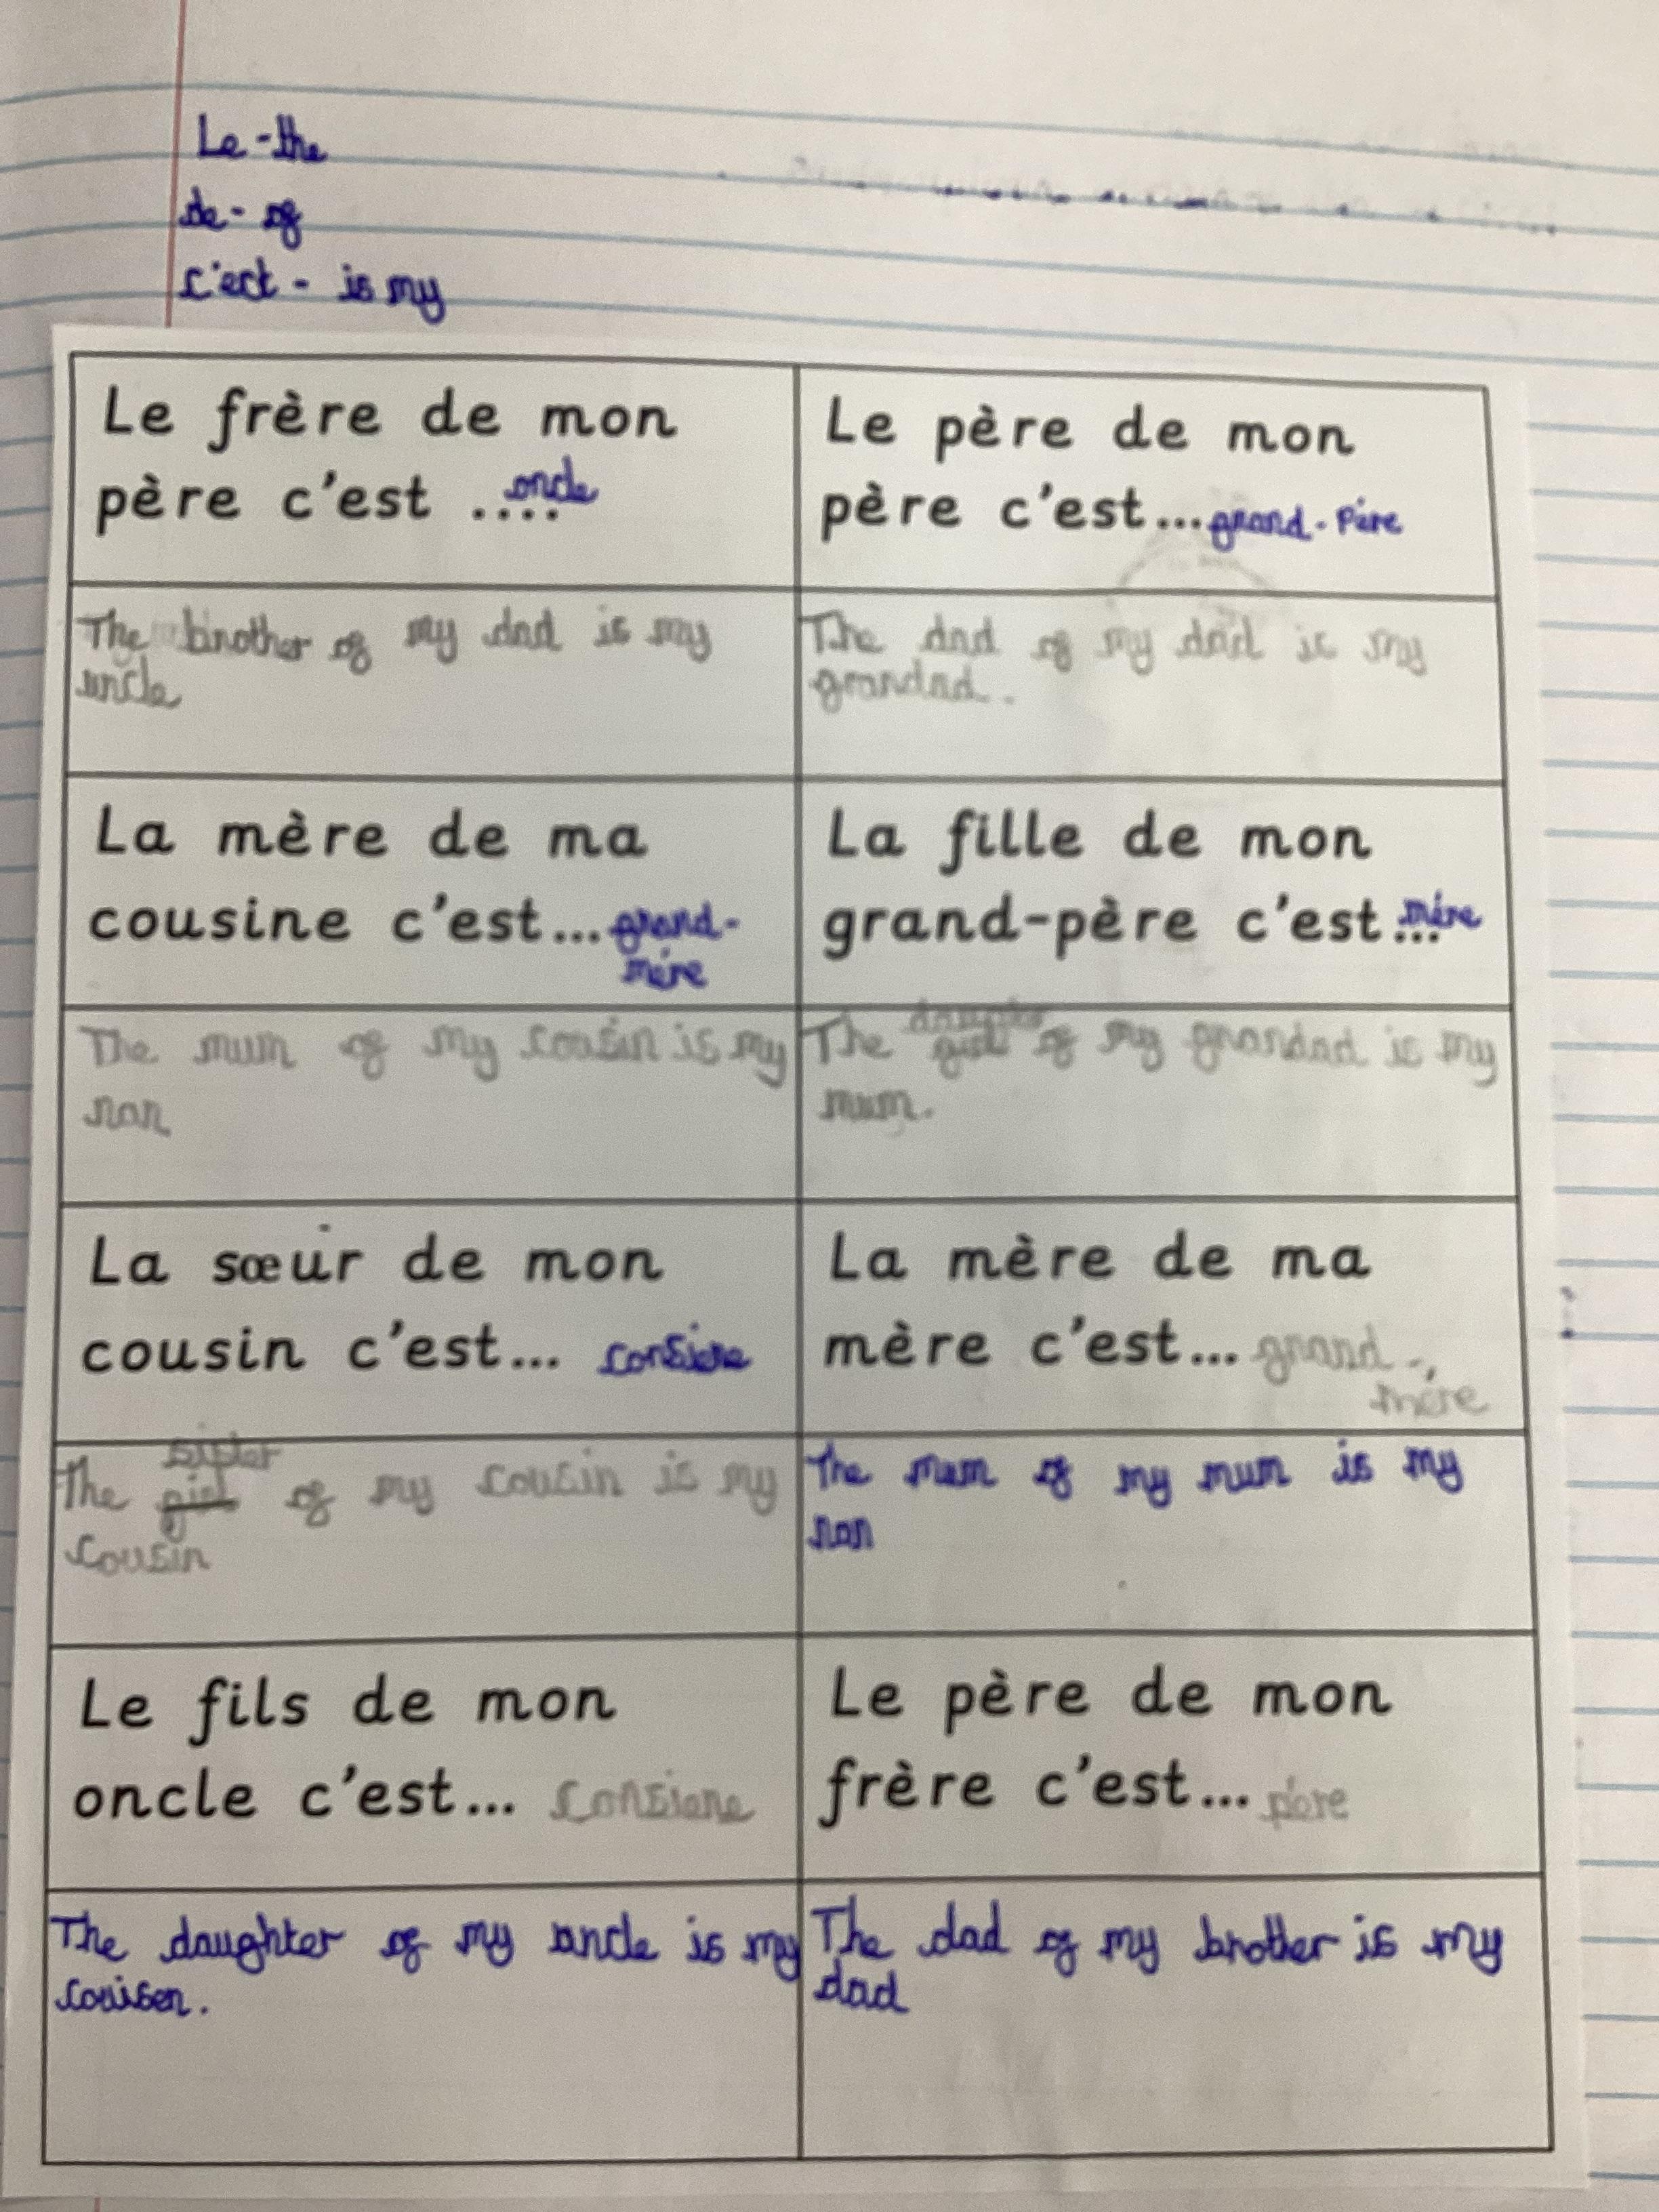 Le - the
de - of
c'est - is my
Le frère de mon
père c'est .... oncle
Le père de mon
père c'est... grand-père
The brother of my dad is my
uncle
The dad of my dad is my
grandad.
La mère de ma
cousine c'est... grand-
mère
La fille de mon
grand-père c'est... mère
The mum of my cousin is my
nan
The daughter of my grandad is my
mum.
La sœur de mon
cousin c'est... consiere
La mère de ma
mère c'est... grand-
mère
sister
The girl of my cousin is my
cousin
The mum of my mum is my
nan
Le fils de mon
oncle c'est... consiere
Le père de mon
frère c'est... père
The daughter of my uncle is my
couisen.
The dad of my brother is my
dad